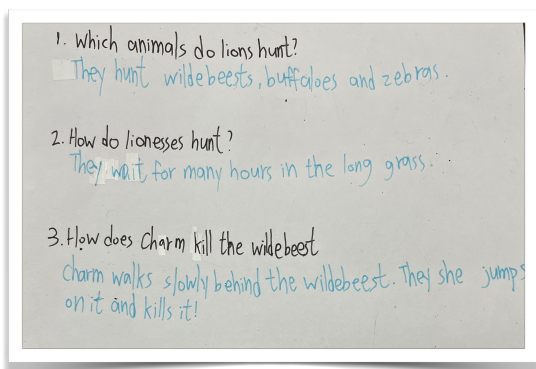 1. Which animals do lions hunt?
They hunt wildebeests, buffaloes and zebras.
2. How do lionesses hunt?
They wait for many hours in the long grass.
3. How does Charm kill the wildebeest
Charm walks slowly behind the wildebeest. They she jumps
on it and kills it!